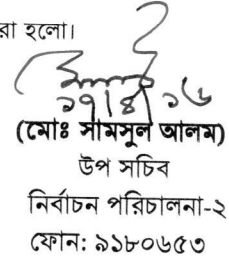 রা হলো।
১৭/৪/১৬
(মোঃ সামসুল আলম)
উপ সচিব
নির্বাচন পরিচালনা-২
ফোন: ৯১৮০৬৫৩